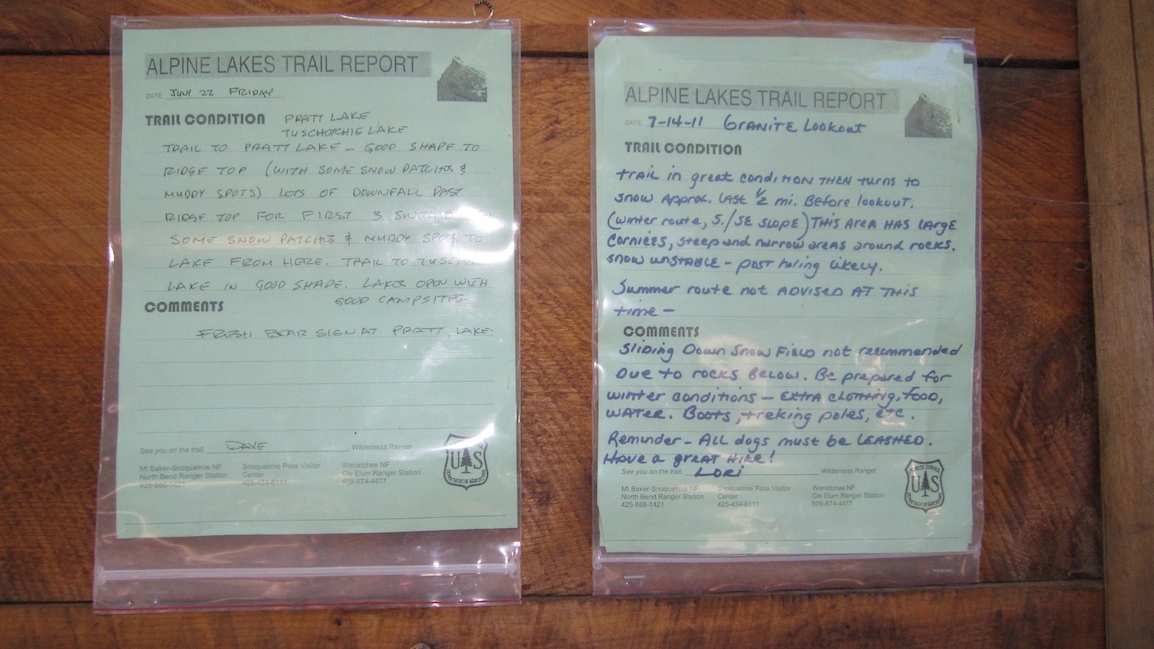 ALPINE LAKES TRAIL REPORT
DATE JULY 22 FRIDAY
TRAIL CONDITION PRATT LAKE
TUSCHOTCHIE LAKE
TRAIL TO PRATT LAKE - GOOD SHAPE TO
RIDGE TOP (WITH SOME SNOW PATCHES &
MUDDY SPOTS) LOTS OF DOWNFALL PAST
RIDGE TOP FOR FIRST 3
SOME SNOW PATCHES & MUDDY SPOTS TO
LAKE FROM HERE. TRAIL TO
LAKE IN GOOD SHAPE. LAKES OPEN WITH
GOOD CAMPSITES
COMMENTS
FRESH BEAR SIGN AT PRATT LAKE.
See you on the trail, DAVE Wilderness Ranger
Mt Baker-Snoqualmie NF Snoqualmie Pass Visitor Wenatchee NF
North Bend Ranger Station Center Cle Elum Ranger Station
425-888-1421 425-434-6111 509-674-4477
U S
ALPINE LAKES TRAIL REPORT
DATE 7-14-11 GRANITE Lookout
TRAIL CONDITION
trail in great condition THEN turns to
snow Approx. LAST 1/2 mi. Before lookout.
(winter route, S./SE SLOPE) THIS AREA HAS LARGE
Cornices, steep and narrow areas around rocks.
snow UNSTABLE - post holing likely.
Summer route not ADVISED AT THIS
time -
COMMENTS
Sliding Down Snow Field not recommended
Due to rocks Below. Be prepared for
winter conditions - EXTRA clothing, food,
WATER. Boots, treking poles, etc.
Reminder - ALL dogs must be LEASHED.
Have a great Hike!
See you on the trail, LORI Wilderness Ranger
Mt Baker-Snoqualmie NF Snoqualmie Pass Visitor Wenatchee NF
North Bend Ranger Station Center Cle Elum Ranger Station
425-888-1421 425-434-6111 509-674-4477
FOREST SERVICE
U S
DEPARTMENT OF AGRICULTURE